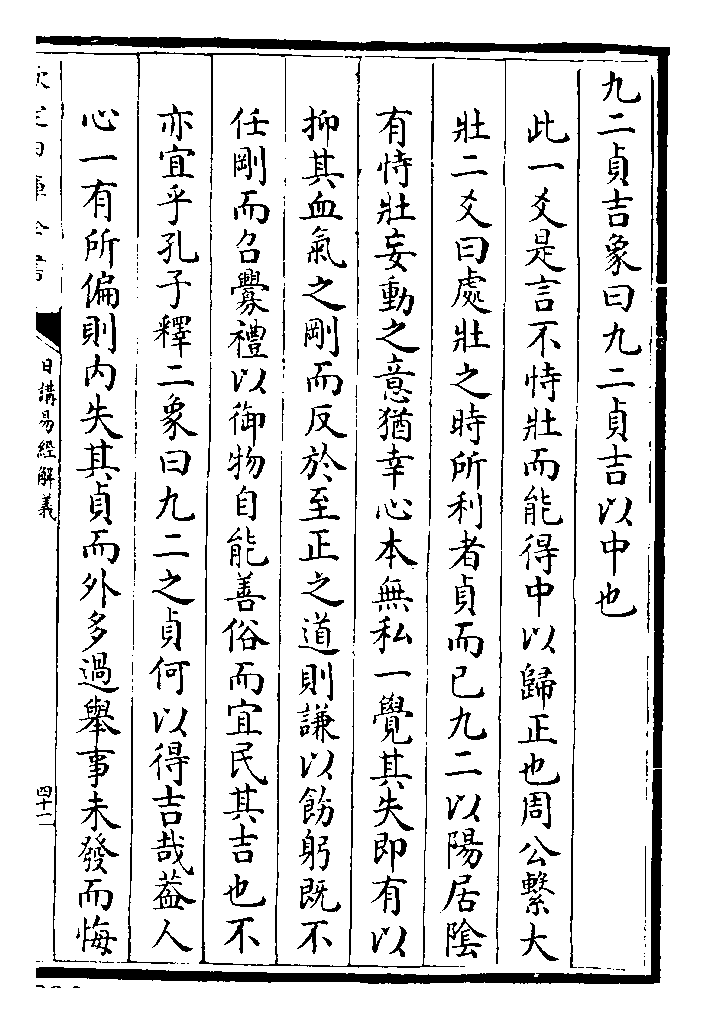 九二貞吉象曰九二貞吉以中也
此一爻是言不恃壯而能得中以歸正也周公繫大
壯二爻曰處壯之時所利者貞而已九二以陽居隂
有恃壯妄動之意猶幸心本無私一覺其失即有以
抑其血氣之剛而反於至正之道則謙以飭躬既不
任剛而召釁禮以御物自能善俗而宜民其吉也不
亦宜乎孔子釋二象曰九二之貞何以得吉哉葢人
心一有所偏則內失其貞而外多過舉事未發而悔
欽定四庫全書
日講易經解義
四十二